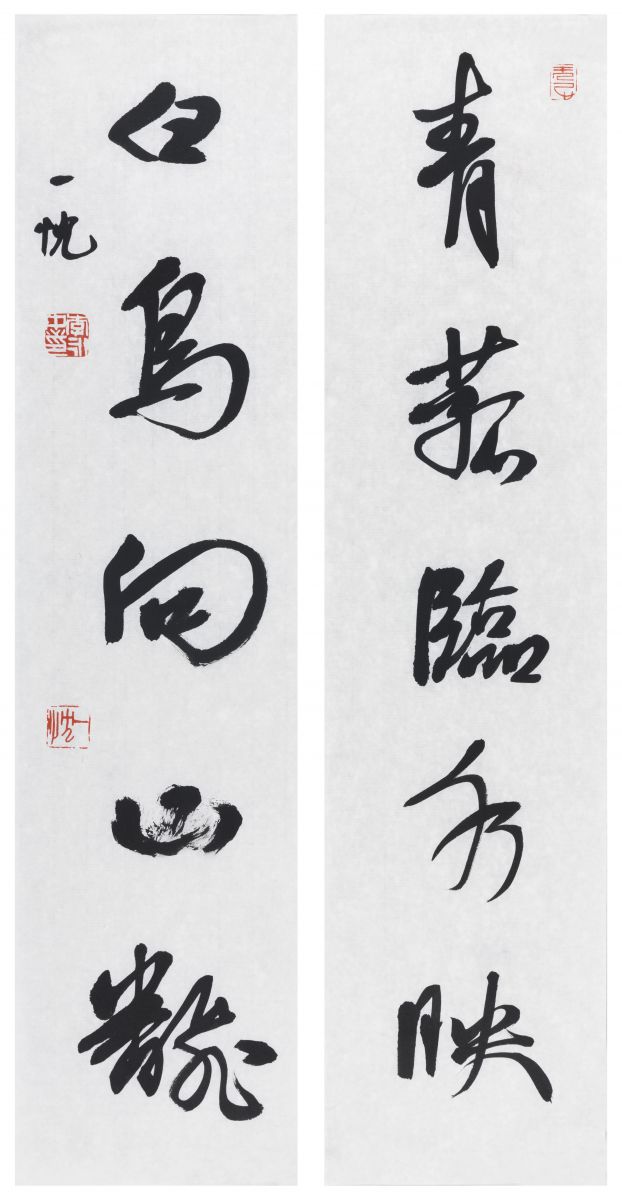 青菰臨水映
白鳥向山飜
一忱